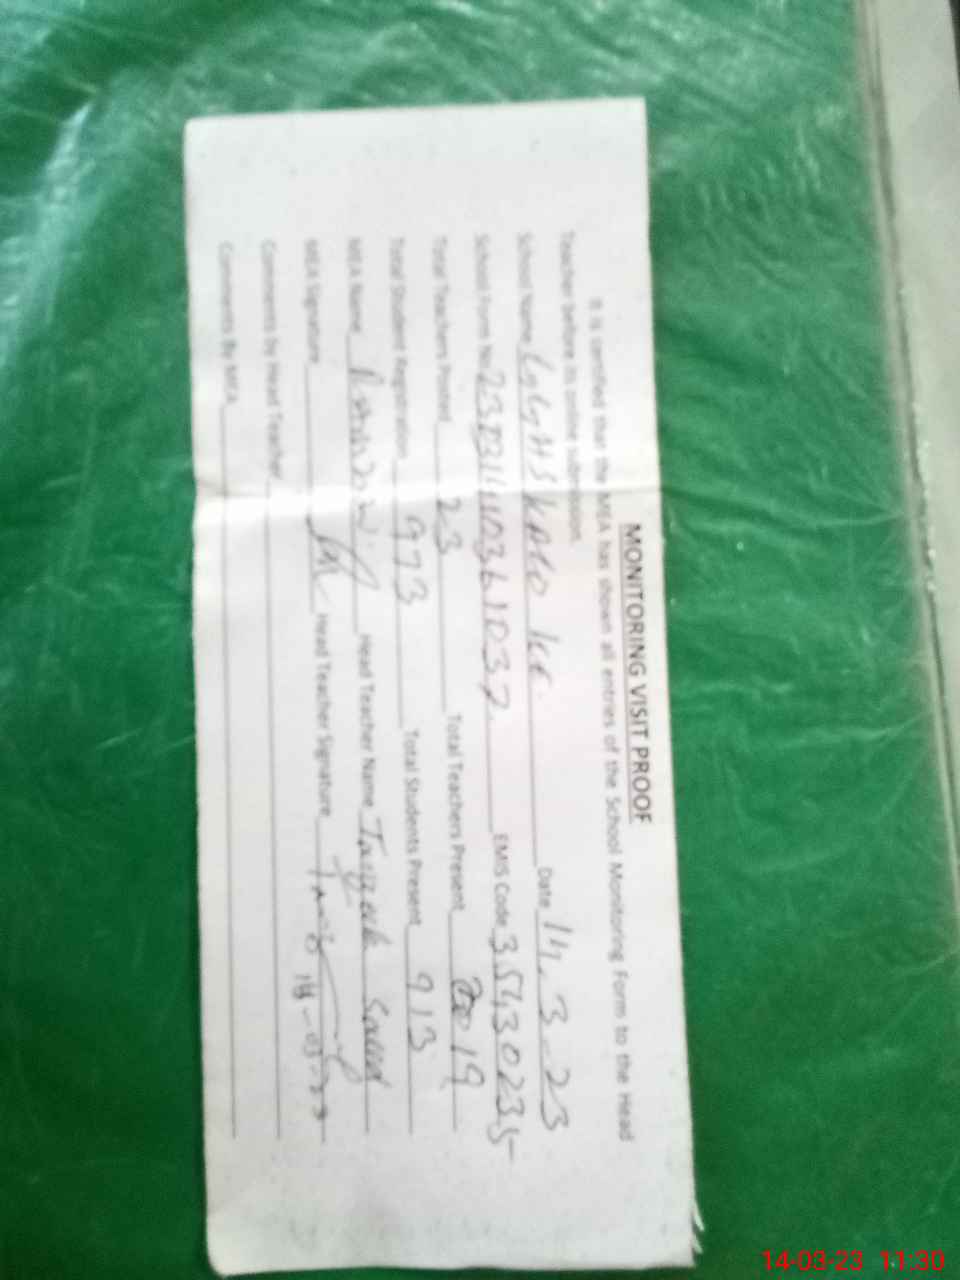 MONITORING VISIT PROOF
It is certified that the MEA has shown all entries of the School Monitoring Form to the Head
Teacher before its online submission.
School Name GGHS Date 14.3.23
School Form No. EMIS Code 35430235
Total Teachers Posted 23 Total Teachers Present 19
Total Student Registration 973 Total Students Present 913
MEA Name Head Teacher Name
MEA Signature Head Teacher Signature
14-03-23
Comments by Head Teacher
Comments By MEA
14-03-23 11:30